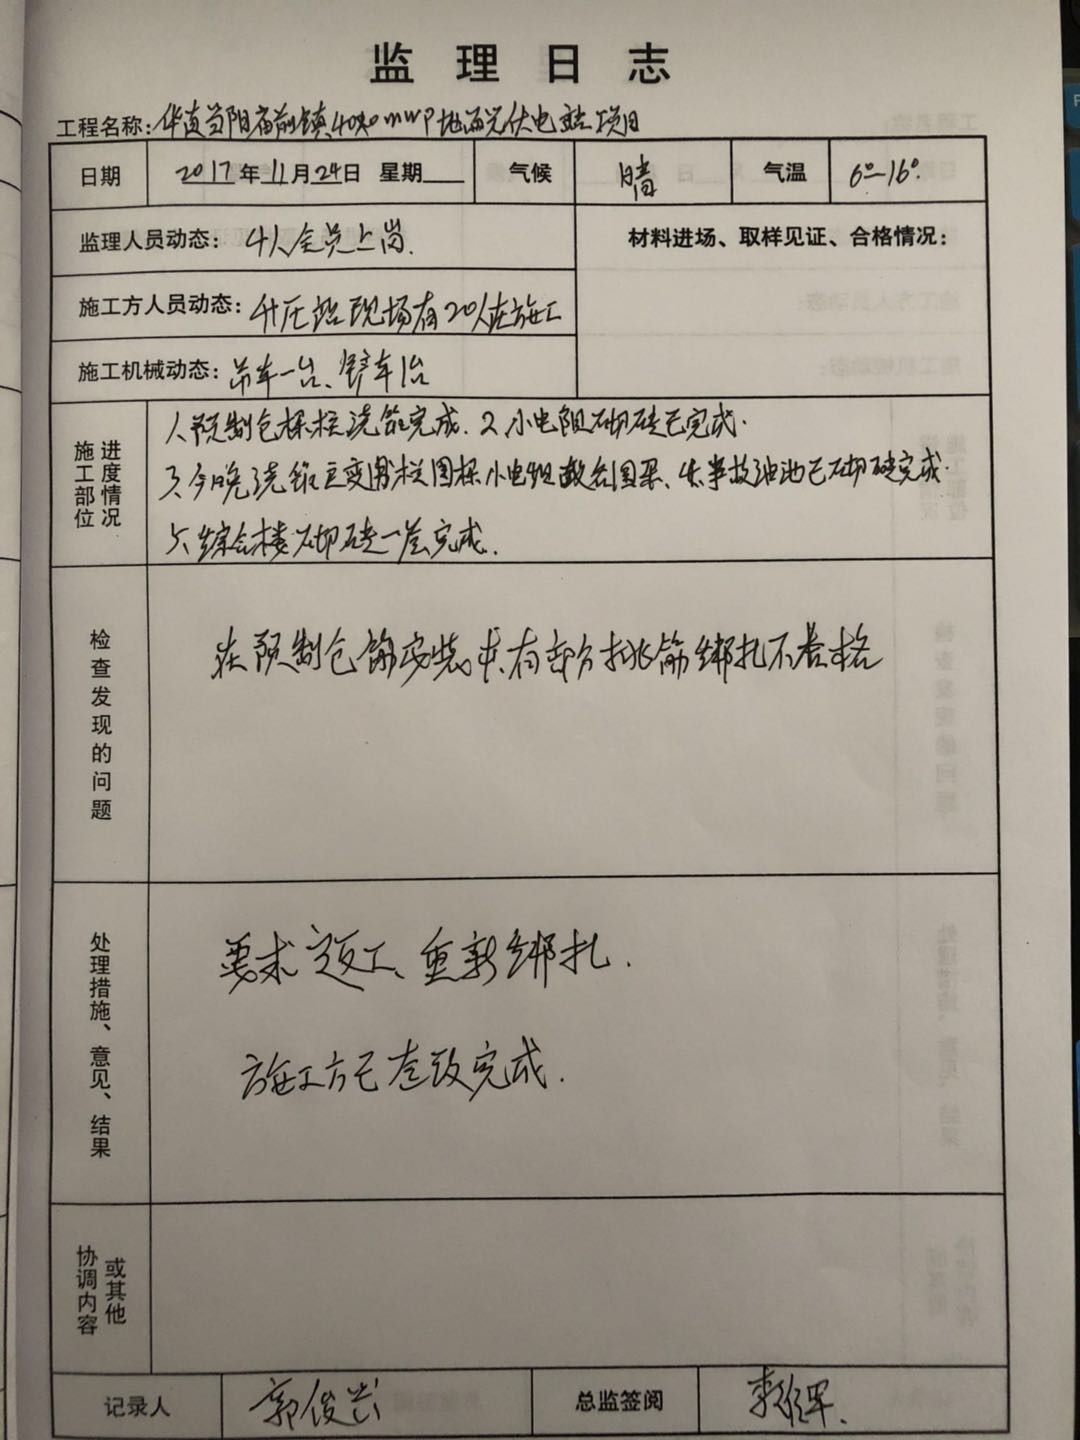 监理日志
工程名称：华直当阳庙前镇40.20mwp地面光伏电站项目
日期 2017年11月24日 星期 气候 晴 气温 6°-16°.
监理人员动态：4人全员上岗.
材料进场、取样见证、合格情况：
施工方人员动态：升压站现场有20人在施工
施工机械动态：吊车一台、铲车1台
施工部位进度情况
1、预制仓 浇筑完成. 2、小电阻砌砖已完成.
3、今晚浇筑主变 小电阻 4、事故油池已砌砖完成.
5、综合楼砌砖一层完成.
检查发现的问题
在预制仓筋安装中有部分挑筋绑扎不合格
处理措施、意见、结果
要求返工、重新绑扎.
施工方已整改完成.
协调内容或其他
记录人 郭俊 总监签阅 李